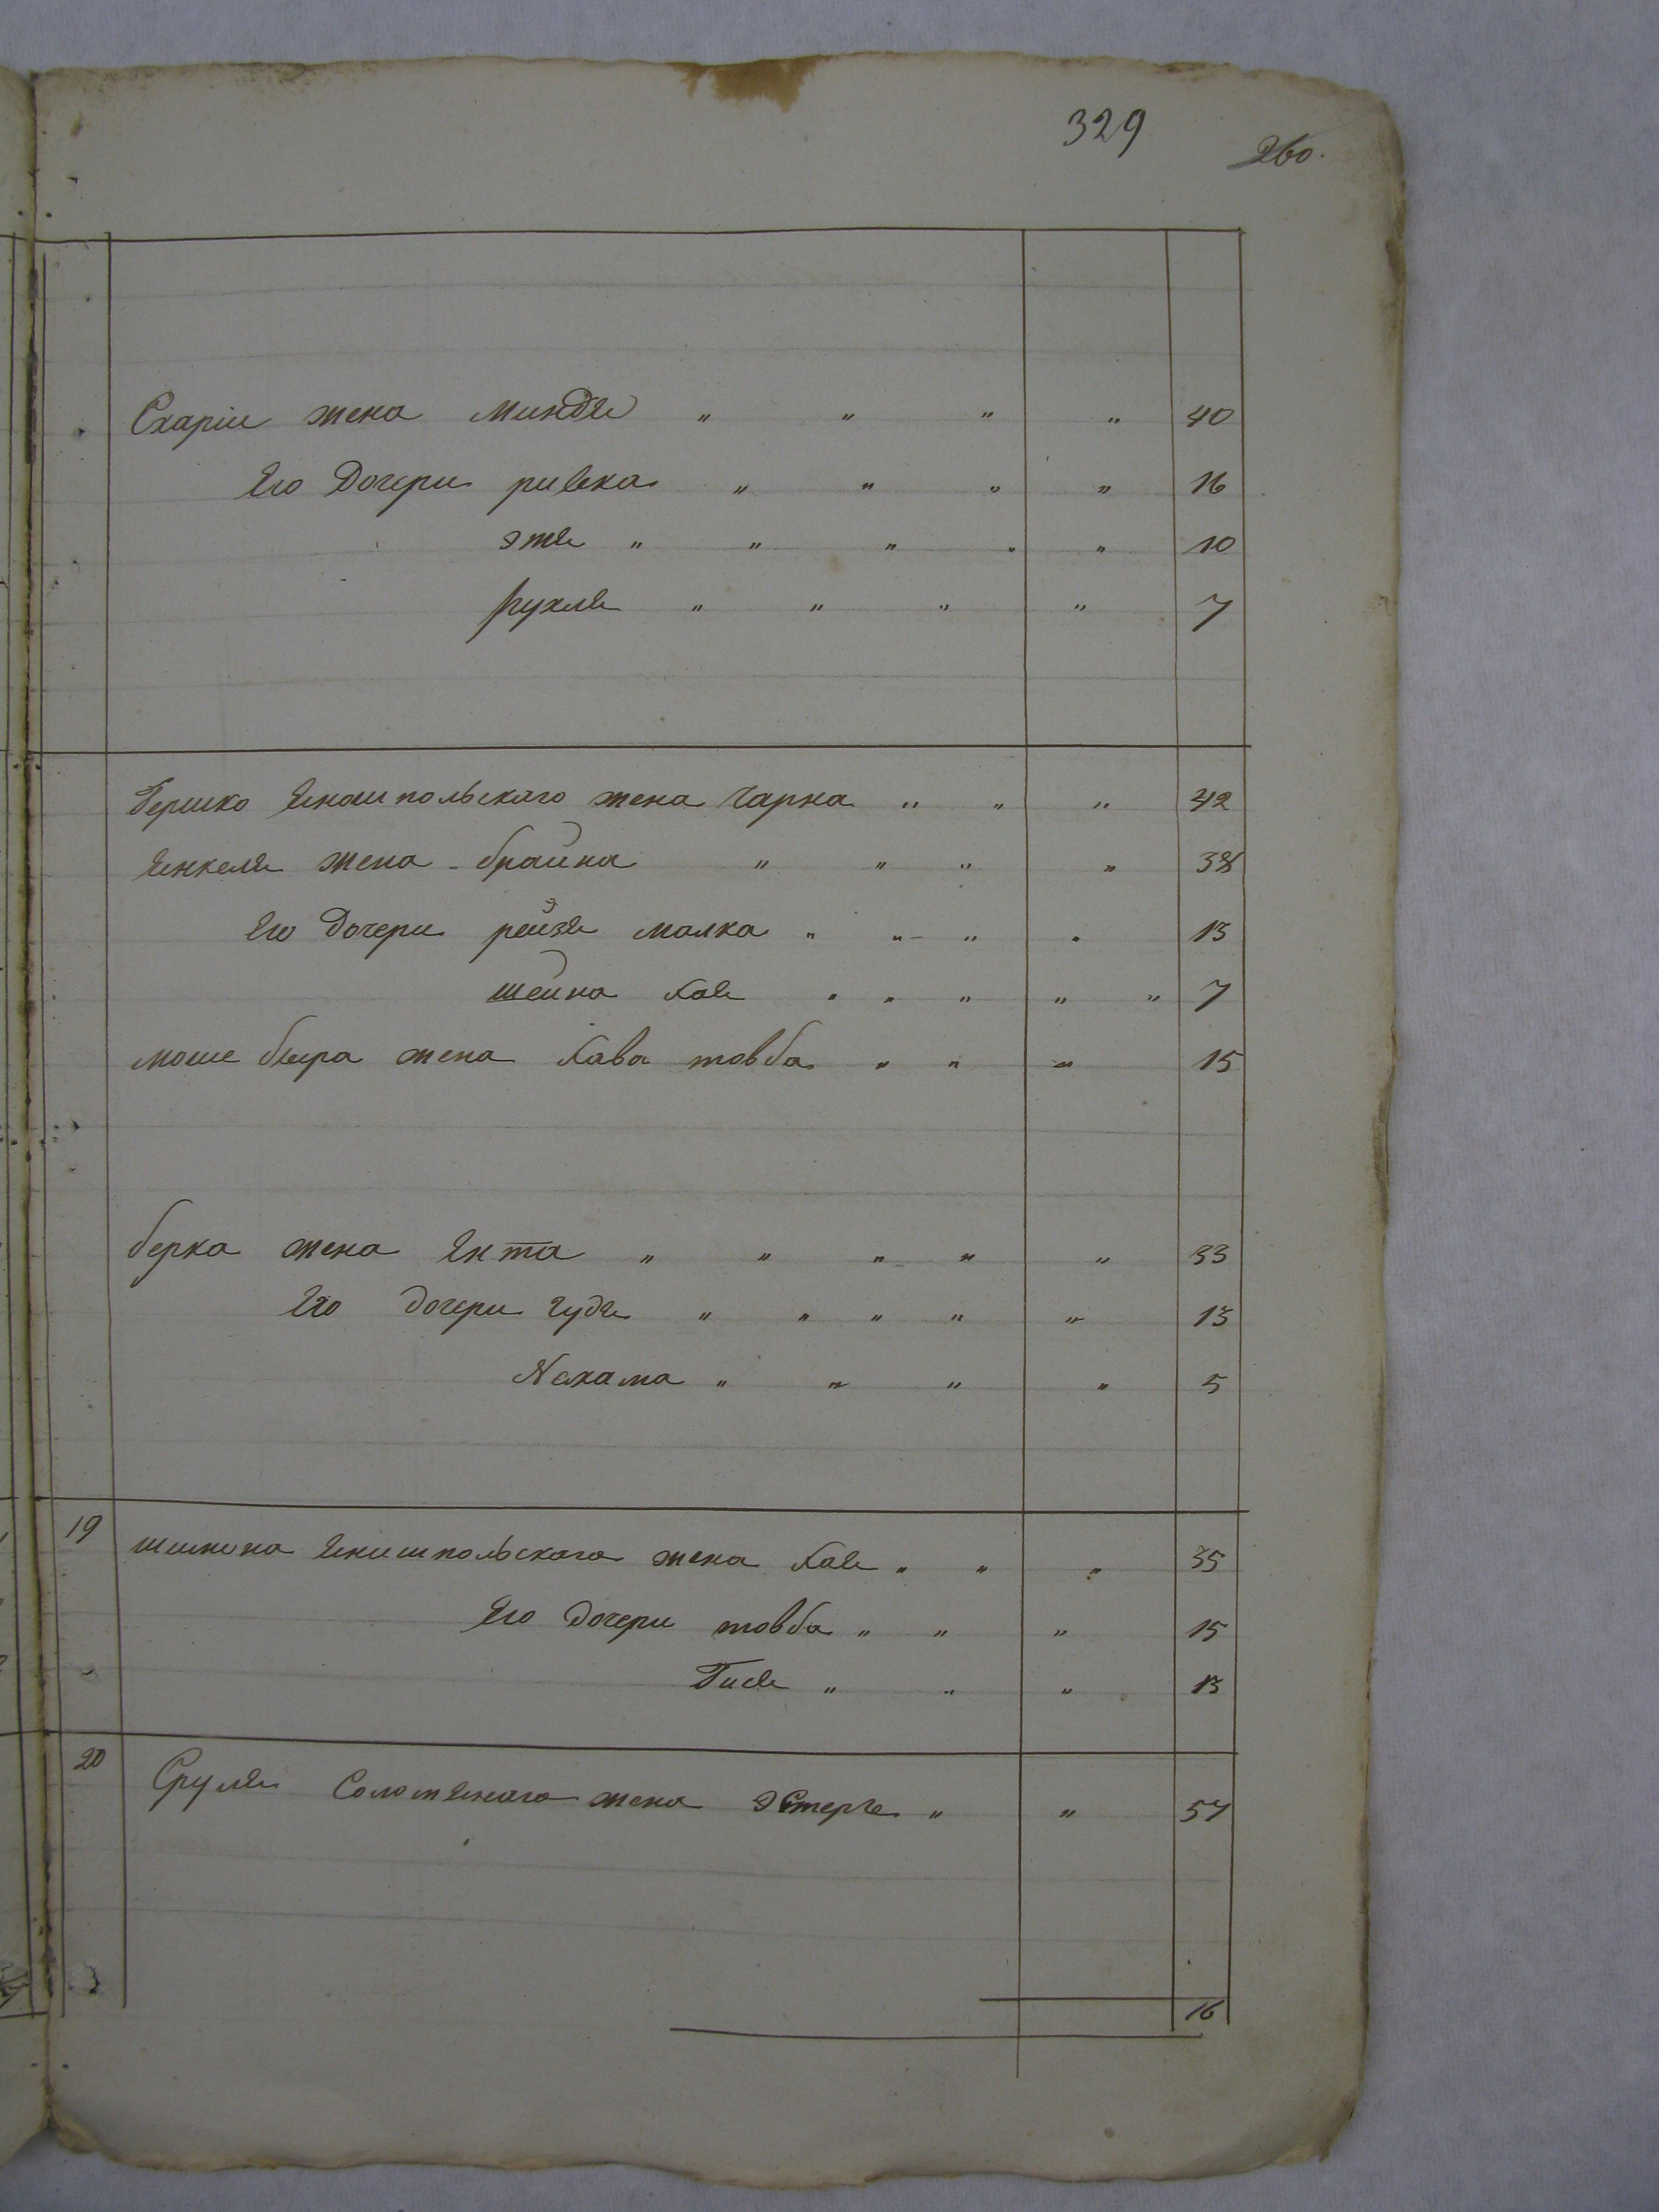 329
260.
Схаріи жена миндля " " " " 40
Его Дочери ривка " " " " 16
Этля " " " " " 10
рухля " " " " 7
Гершко Яношпольскаго жена Чарна " " " 42
Янкеля жена браина " " " " 38
Его Дочери реизя малка " " " " 13
шеина хая " " " " " 7
моше бера жена хава товба " " " 15
берка жена Ента " " " " " 33
Его дочери гудя " " " " " 13
Нехама " " " " 5
19 шимона Янишпольскаго жена хая " " " 35
Его дочери товба " " " 15
Гися " " " 13
20 Сруля жена Эстерь " " 57
16